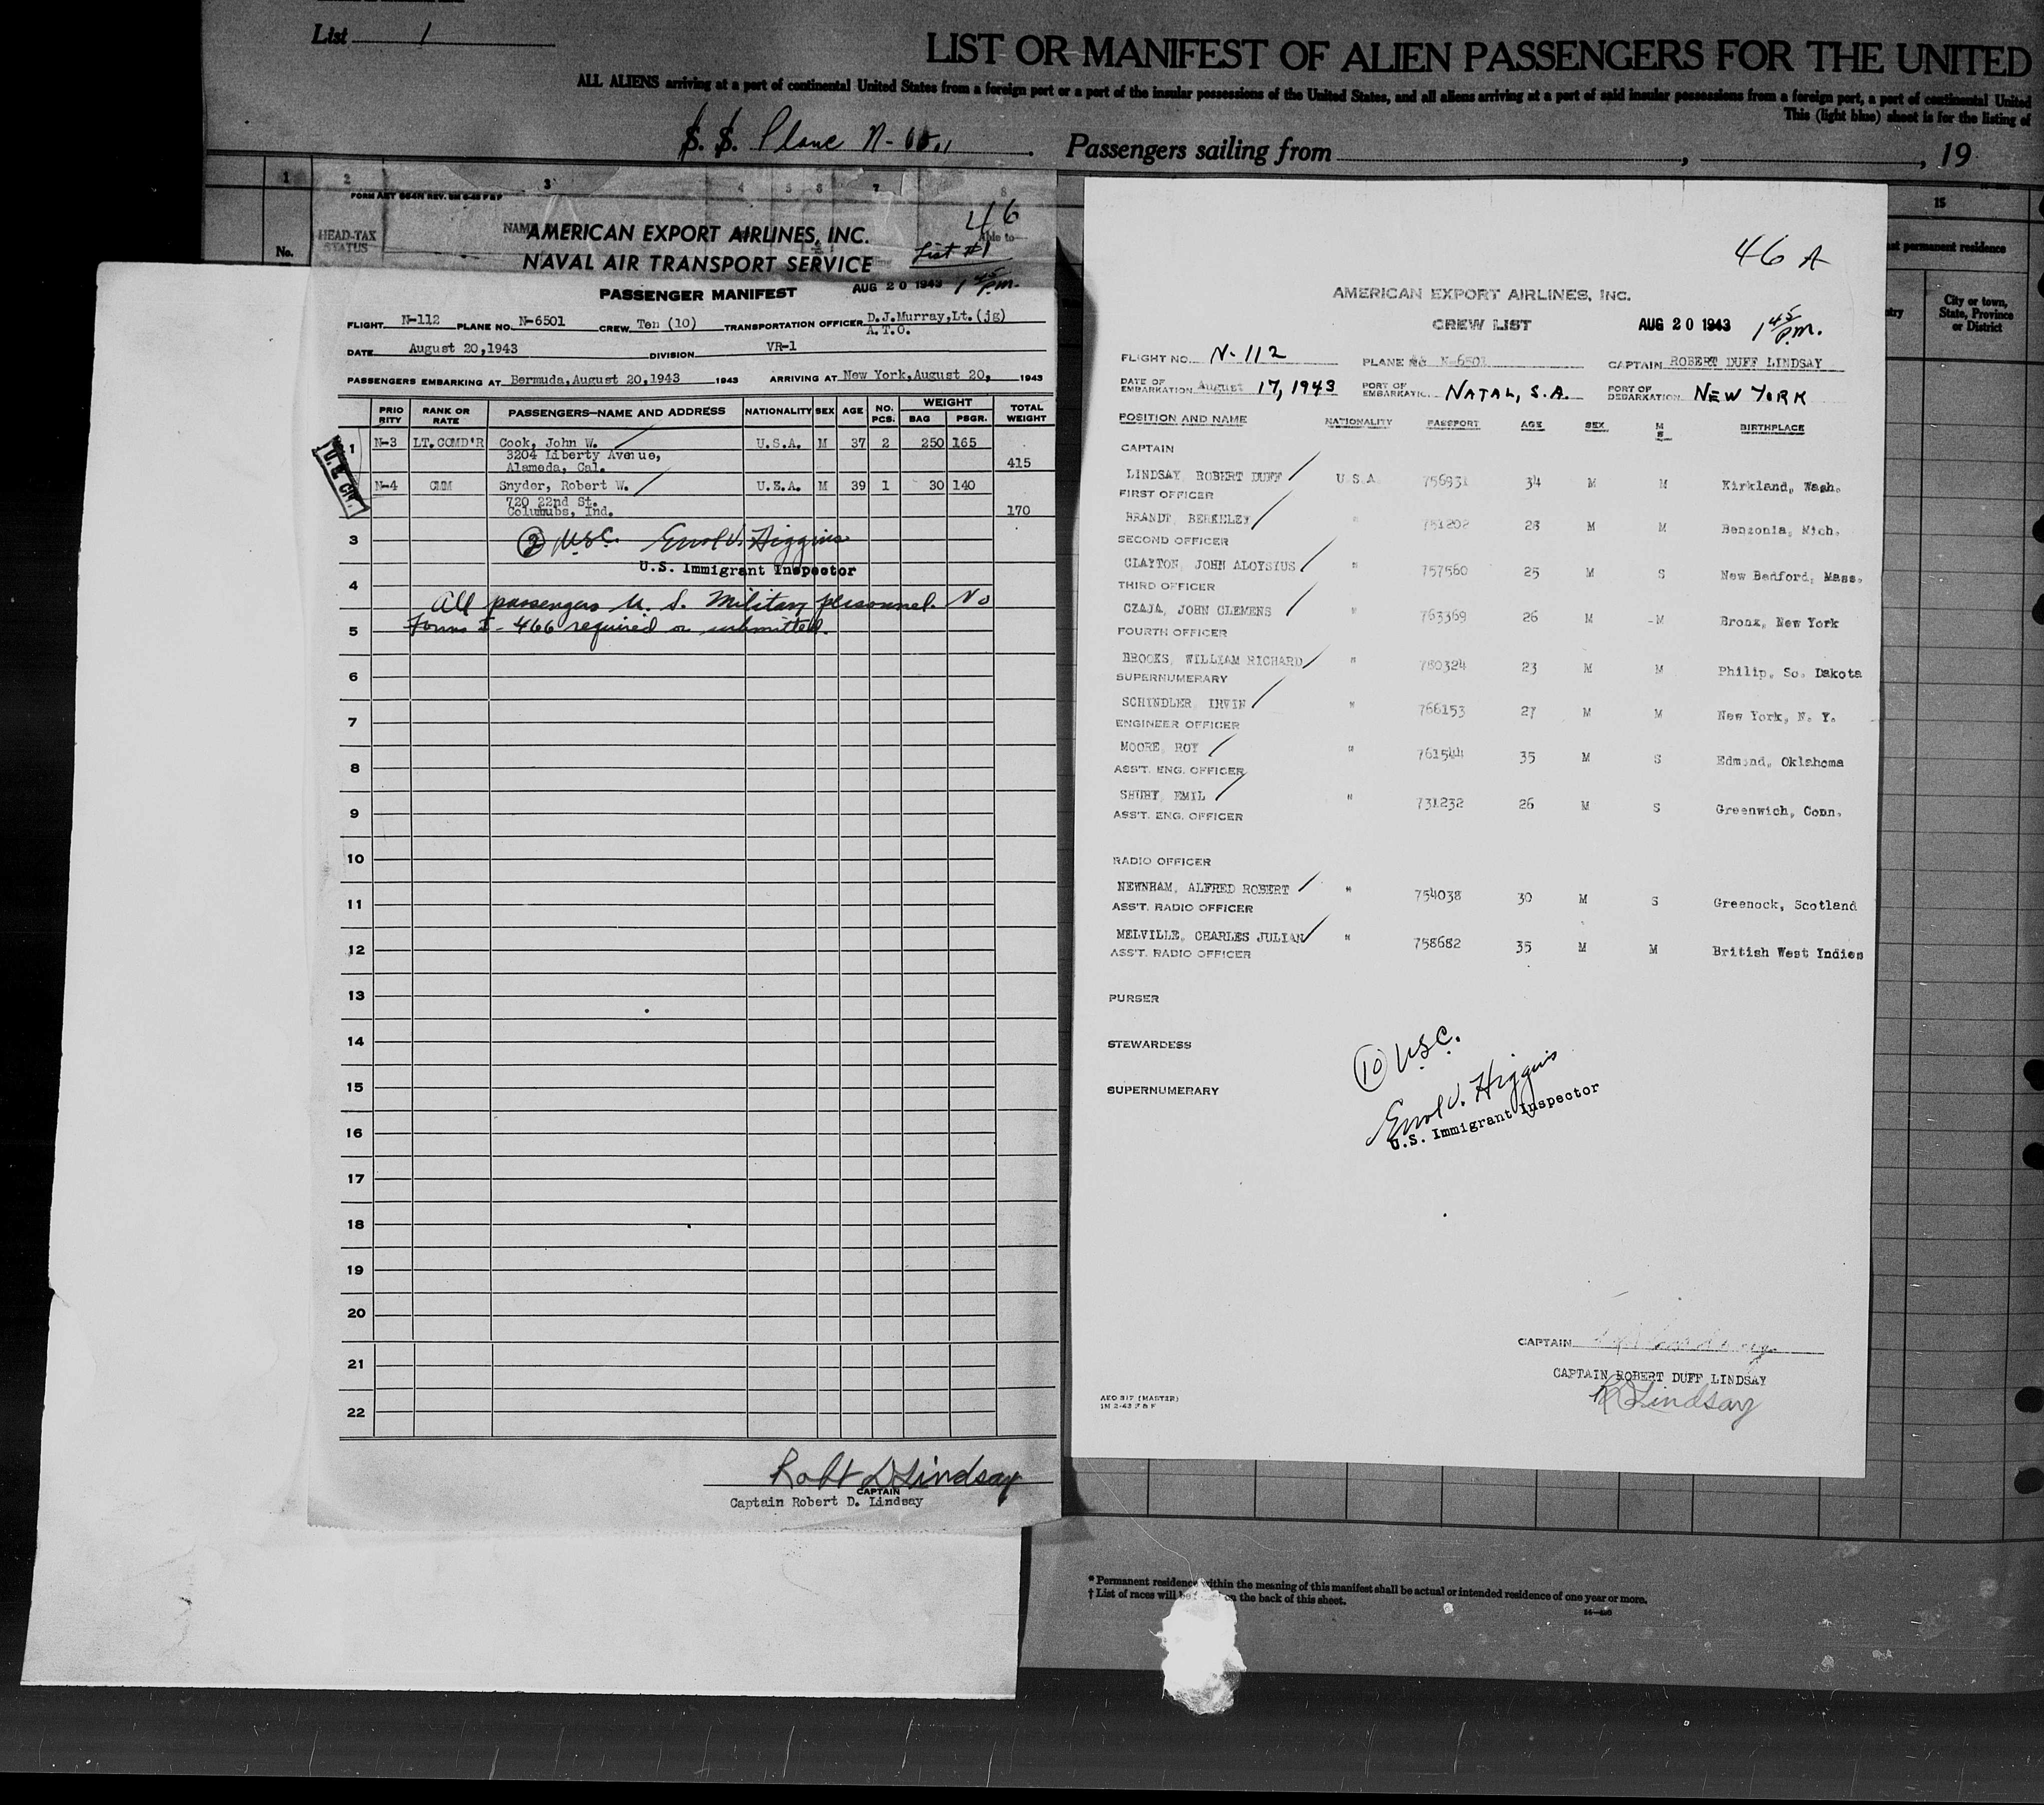 List 1
LIST OR MANIFEST OF ALIEN PASSENGERS FOR THE UNITED
ALL ALIENS arriving at a port of continental United States from a foreign port or a port of the insular possessions of the United States, and all aliens arriving at a port of said insular possessions from a foreign port, a port of continental United
This (light blue) sheet is for the listing of
S. S. Plane N-
Passengers sailing from , , 19
1 2 3 4 5 6 7 8
HEAD-TAX STATUS
No.
46
AMERICAN EXPORT AIRLINES, INC.
List #1
NAVAL AIR TRANSPORT SERVICE
PASSENGER MANIFEST AUG 20 1943 1 45 P.M.
FLIGHT N-112 PLANE NO. N-6501 CREW Ten (10) TRANSPORTATION OFFICER D.J.Murray,Lt.(jg) A.T.O.
DATE August 20,1943 DIVISION VR-1
PASSENGERS EMBARKING AT Bermuda,August 20,1943 1943 ARRIVING AT New York,August 20, 1943
PRIORITY RANK OR RATE PASSENGERS—NAME AND ADDRESS NATIONALITY SEX AGE NO. PCS. WEIGHT BAG PSGR. TOTAL WEIGHT
1 N-3 LT.COMD'R Cook, John W. U.S.A. M 37 2 250 165
3204 Liberty Avenue,
Alameda, Cal. 415
N-4 CMM Snyder, Robert W. U.S.A. M 39 1 30 140
720 22nd St.
Columubs, Ind. 170
U.S. CIT.
3 (2) USC. Errol V. Higgins
U.S. Immigrant Inspector
4 All passengers U. S. Military personnel. No
5 Forms I-466 required or submitted.
6
7
8
9
10
11
12
13
14
15
16
17
18
19
20
21
22
Robt D Lindsay
CAPTAIN
Captain Robert D. Lindsay
46 A
AMERICAN EXPORT AIRLINES, INC.
CREW LIST AUG 20 1943 1 45 P.M.
FLIGHT NO. N-112 PLANE NO. N-6501 CAPTAIN ROBERT DUFF LINDSAY
DATE OF EMBARKATION August 17, 1943 PORT OF EMBARKATION NATAL, S.A. PORT OF DEBARKATION NEW YORK
POSITION AND NAME NATIONALITY PASSPORT AGE SEX M S BIRTHPLACE
CAPTAIN
LINDSAY, ROBERT DUFF U.S.A. 756931 34 M M Kirkland, Wash.
FIRST OFFICER
BRANDT, BERKELEY " 751202 28 M M Benzonia, Mich.
SECOND OFFICER
CLAYTON, JOHN ALOYSIUS " 757560 25 M S New Bedford, Mass.
THIRD OFFICER
CZAJA, JOHN CLEMENS " 763369 26 M -M Bronx, New York
FOURTH OFFICER
BROOKS, WILLIAM RICHARD " 780324 23 M M Philip, So. Dakota
SUPERNUMERARY
SCHINDLER, IRVIN " 766153 27 M M New York, N. Y.
ENGINEER OFFICER
MOORE, ROY " 761544 35 M S Edmond, Oklahoma
ASS'T. ENG. OFFICER
SHUBY, EMIL " 731232 26 M S Greenwich, Conn.
ASS'T. ENG. OFFICER
RADIO OFFICER
NEWNHAM, ALFRED ROBERT " 754038 30 M S Greenock, Scotland
ASS'T. RADIO OFFICER
MELVILLE, CHARLES JULIAN " 758682 35 M M British West Indies
ASS'T. RADIO OFFICER
PURSER
STEWARDESS
SUPERNUMERARY
(10) USC.
Errol V. Higgins
U.S. Immigrant Inspector
CAPTAIN
CAPTAIN ROBERT DUFF LINDSAY
RDLindsay
AEO 317 (MASTER)
1M 2-43 F & F
15
permanent residence
City or town, State, Province or District
* Permanent residence within the meaning of this manifest shall be actual or intended residence of one year or more.
† List of races will be on the back of this sheet.